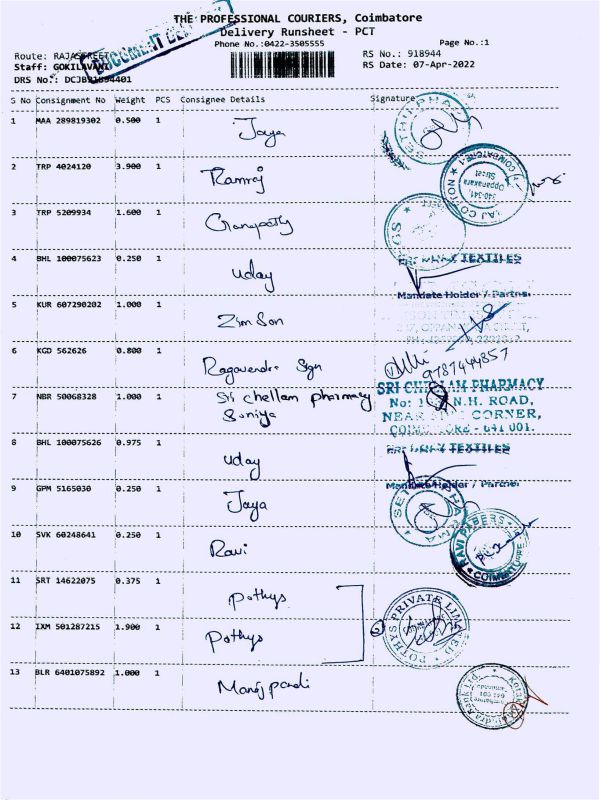 THE PROFESSIONAL COURIERS, Coimbatore
Delivery Runsheet - PCT
Phone No.:0422-3505555
Page No.:1
Route: RAJASTREET
RS No.: 918944
Staff: GOKILAVANI
RS Date: 07-Apr-2022
DRS No.:
S No Consignment No Weight PCS Consignee Details Signature
1 MAA 289819302 0.500 1 Jaya
2 TRP 4024120 3.900 1 Ramraj
3 TRP 5209934 1.600 1 Ganapathy
4 BHL 100075623 0.250 1 uday
TEXTILES
Mandate Holder / Partner
5 KUR 607290202 1.000 1 Zimson
6 KGD 562626 0.800 1 Ragavendra Sign
9787444857
7 NBR 50068328 1.000 1 Sri chellam pharmacy
Soniya
SRI CHELLAM PHARMACY
No: N.H. ROAD,
NEAR CORNER,
COIMBATORE - 641 001.
8 BHL 100075626 0.975 1 uday
TEXTILES
Mandate Holder / Partner
9 GPM 5165030 0.250 1 Jaya
10 SVK 60248641 0.250 1 Ravi
RAVI PAPERS
COIMBATORE
11 SRT 14622075 0.375 1 pothys
12 IXM 501287215 1.900 1 pothys
POTHYS PRIVATE LIMITED
13 BLR 6401075892 1.000 1 Manojpandi